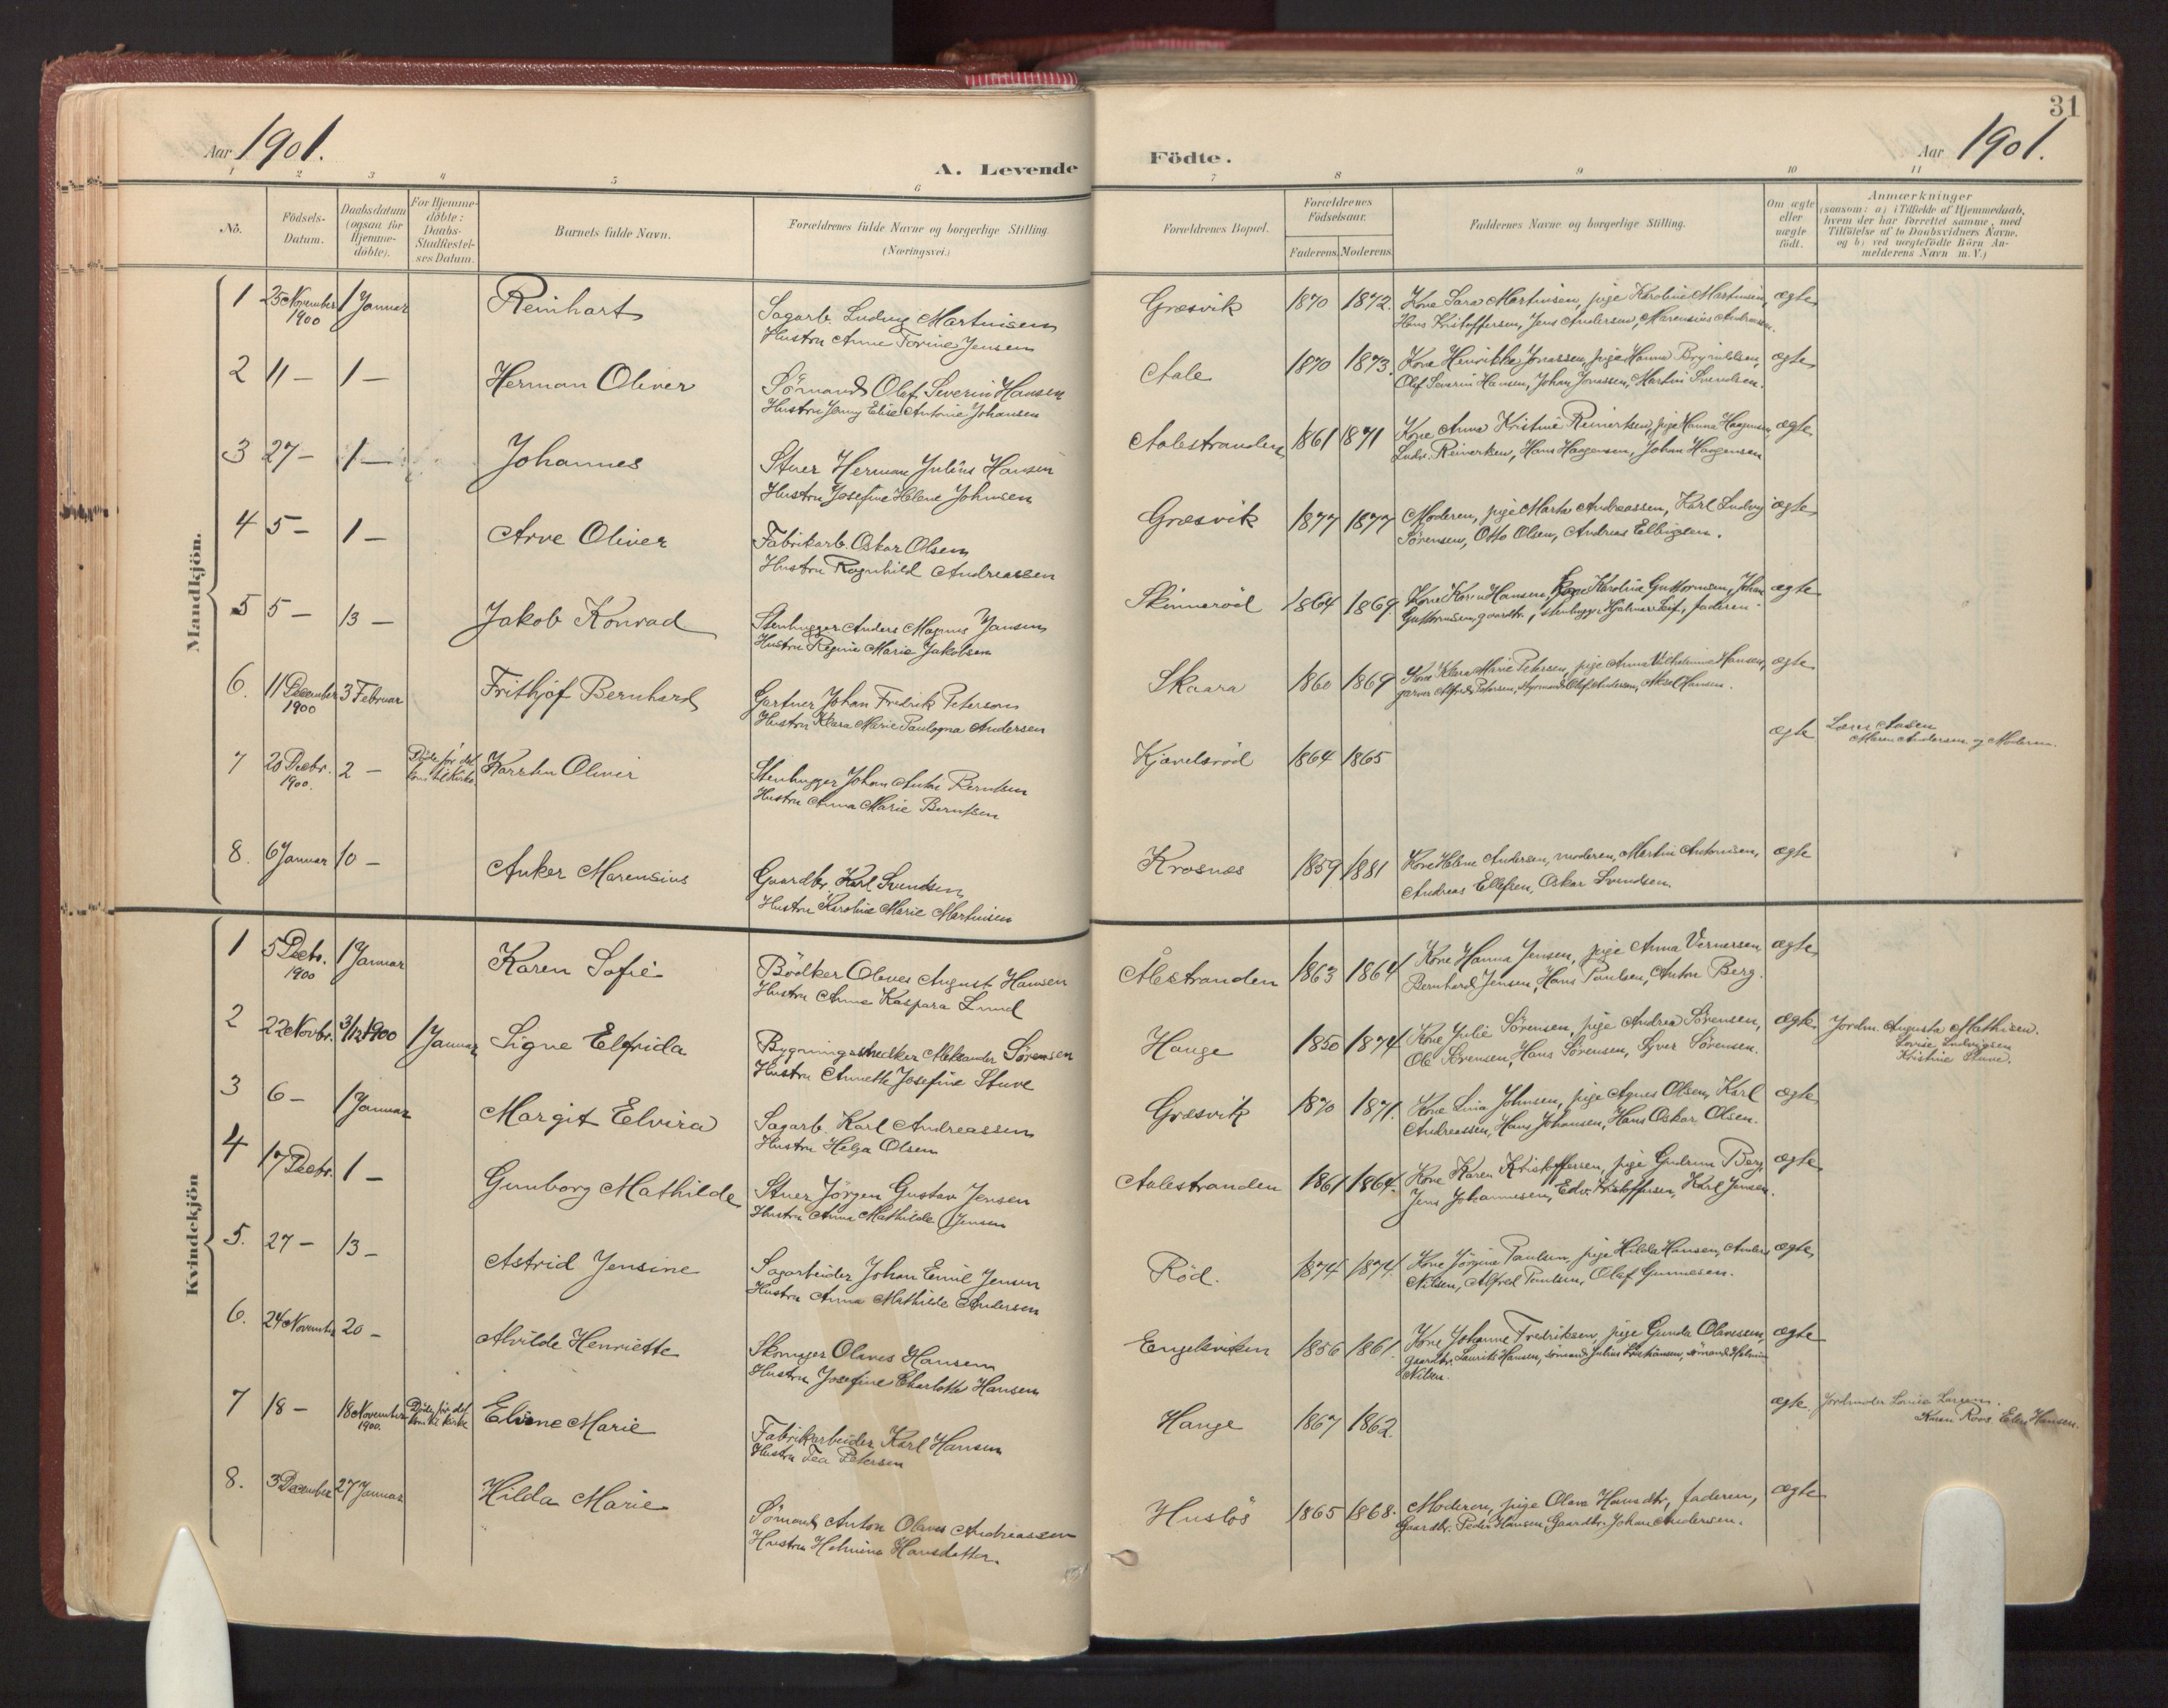 31
Aar 1901.
A. Levende
Födte.
Aar 1901.
1 2 3 4 5 6 7 8 9 10 11
No.
Födsels-
Datum.
Daabsdatum
(ogsaa for
Hjemme-
döbte).
For Hjemme-
döbte:
Daabs-
Stadfæstel-
ses Datum.
Barnets fulde Navn.
Forældrenes fulde Navne og borgerlige Stilling.
(Næringsvei.)
Forældrenes Bopæl.
Forældrenes
Födselsaar.
Faderens. Moderens.
Faddernes Navne og borgerlige Stilling.
Om ægte
eller
uægte
födt.
Anmærkninger
(saasom: a) i Tilfælde af Hjemmedaab,
hvem der har forrettet samme, med
Tilföielse af to Daabsvidners Navne,
og b) ved uægtefödte Börn An-
melderens Navn m. V.)
Mandkjön.
1 25 November 1 Januar Reinhart Sagarb. Ludvig Martinisen Græsvik 1870 1872. Kone Sara Martinsen, pige Karoline Martinsen ægte
1900 Hustru Anne Torine Jensen Hans Kristoffersen, Jens Andersen, Marensius Andreassen.
2 11 — 1 — Herman Oliver Sømand Olef Severin Hansen Aale 1870 1873. Kone Henrikke Jonassen, pige Hanna Brynildsen, ægte
Hustru Jenny Elise Antonie Johansen Olef Severin Hansen, Johan Jonassen, Martin Svendsen.
3 27 — 1 — Johannes Stuer Herman Julius Hansen Aalestranden 1861 1871 Kone Anna Kristine Reinertsen, pige Hanna Haagensen, ægte
Hustru Josefine Helene Johnsen Ludv. Reinertsen, Hans Haagensen, Johan Haagensen
4 5 — 1 — Arve Oliver Fabrikarb. Oskar Olsen Græsvik 1877 1877 Moderen, pige Marta Andreassen, Karl Ludvig ægte
Hustru Ragnhild Andreassen Sørensen, Otto Olsen, Andreas Ellingsen.
5 5 — 13 — Jakob Konrad Stenhugger Anders Magnus Jansen Skinnerød 1864 1869 Kone Karen Hansen, Karoline Guttormsen, Johan ægte
Hustru Regine Marie Jakobsen Guttormsen, gaardbr., stenhugger Hjalmar Leif, faderen.
6. 11 December 3 Februar Frithjof Bernhard Gartner Johan Fredrik Peterson Skaara 1860 1869 Kone Klara Marie Petersen, pige Anna Vilhelmine Hansen, ægte
1900 Hustru Klara Marie Paulogna Andersen garver Alfred Petersen, styrmand Olef Andersen, Aksel Hansen.
7 20 Decbr. 2 — Døde før det Karsten Oliver Stenhugger Johan Anton Berntsen Kjævelsrød 1864 1865 ægte Lars Aasen
1900. kom til Kirke. Hustru Anna Marie Berntsen Maren Andersen og Moderen.
8. 6 Januar 10 — Anker Marensius Gaardbr. Karl Svendsen Krosnæs 1859 1881 Kone Helene Andersen, moderen, Martin Antonisen, ægte
Hustru Karoline Marie Martinsen Andreas Ellefsen, Oskar Svendsen.
Kvindekjön
1 5 Decbr. 1 Januar Karen Sofie Bödker Olaves August Hansen Ålestranden 1863 1864 Kone Hanna Jensen, pige Anna Vernersen ægte
1900 Hustru Anne Kaspara Lund Bernhard Jensen, Hans Paulsen, Anton Berg.
2 22 Novbr. 3/12 1900 1 Januar Signe Elfrida Bygningssnedker Aleksander Sørensen Hauge 1850 1874 Kone Julie Sørensen, pige Andrea Sørensen, ægte Jordm. Augusta Mathisen.
Hustru Annette Josefine Stuve Ole Sørensen, Hans Sørensen, Syver Sørensen. Lovise Ludvigsen
Kristine Stuve.
3 6 — 1 Januar Margit Elvira Sagarb. Karl Andreassen Græsvik 1870 1871. Kone Lina Johnsen, pige Agnes Olsen, Karl ægte
Hustru Helga Olsen Andreassen, Hans Johansen, Hans Oskar Olsen.
4 17 Decbr. 1 — Gunborg Mathilde Stuer Jörgen Gustav Jensen Aalestranden 1861 1864. Kone Karen Kristoffersen, pige Gudrun Berg, ægte
Hustru Anna Mathilde Jensen Jens Johannesen, Edv. Kristoffersen, Karl Jensen.
5. 27 — 13 — Astrid Jensine Sagarbeider Johan Emil Jensen Röd. 1874 1874. Kone Jørgine Paulsen, pige Hilda Hansen, Anders ægte
Hustru Anna Mathilde Andersen Nilsen, Alfred Paulsen, Olaf Gunnesen.
6. 24 November 20 — Alvilde Henriette Skomager Olaves Hansen Engelsviken 1856 1861. Kone Johanne Fredriksen, pige Gunda Olavesen, ægte
Hustru Josefine Charlotte Hansen gaardbr. Laurits Hansen, sømand Julius Kristiansen, sømand Halvin
Nilsen.
7 18 — 18 November Døde før det Eline Marie Fabrikarbeider Karl Hansen Hauge 1867 1862. ægte. Jordmoder Lovise Larsen.
1900. kom til kirke Hustru Tea Petersen Karen Roos Ellen Hansen.
8. 3 December 27 Januar Hilda Marie Sømand Anton Olaves Andreassen Huslös 1865 1868. Moderen, pige Olava Hansdtr., faderen, ægte
Hustru Helmine Hansdatter. Gaardbr. Peder Hansen, Gaardbr. Johan Andersen.